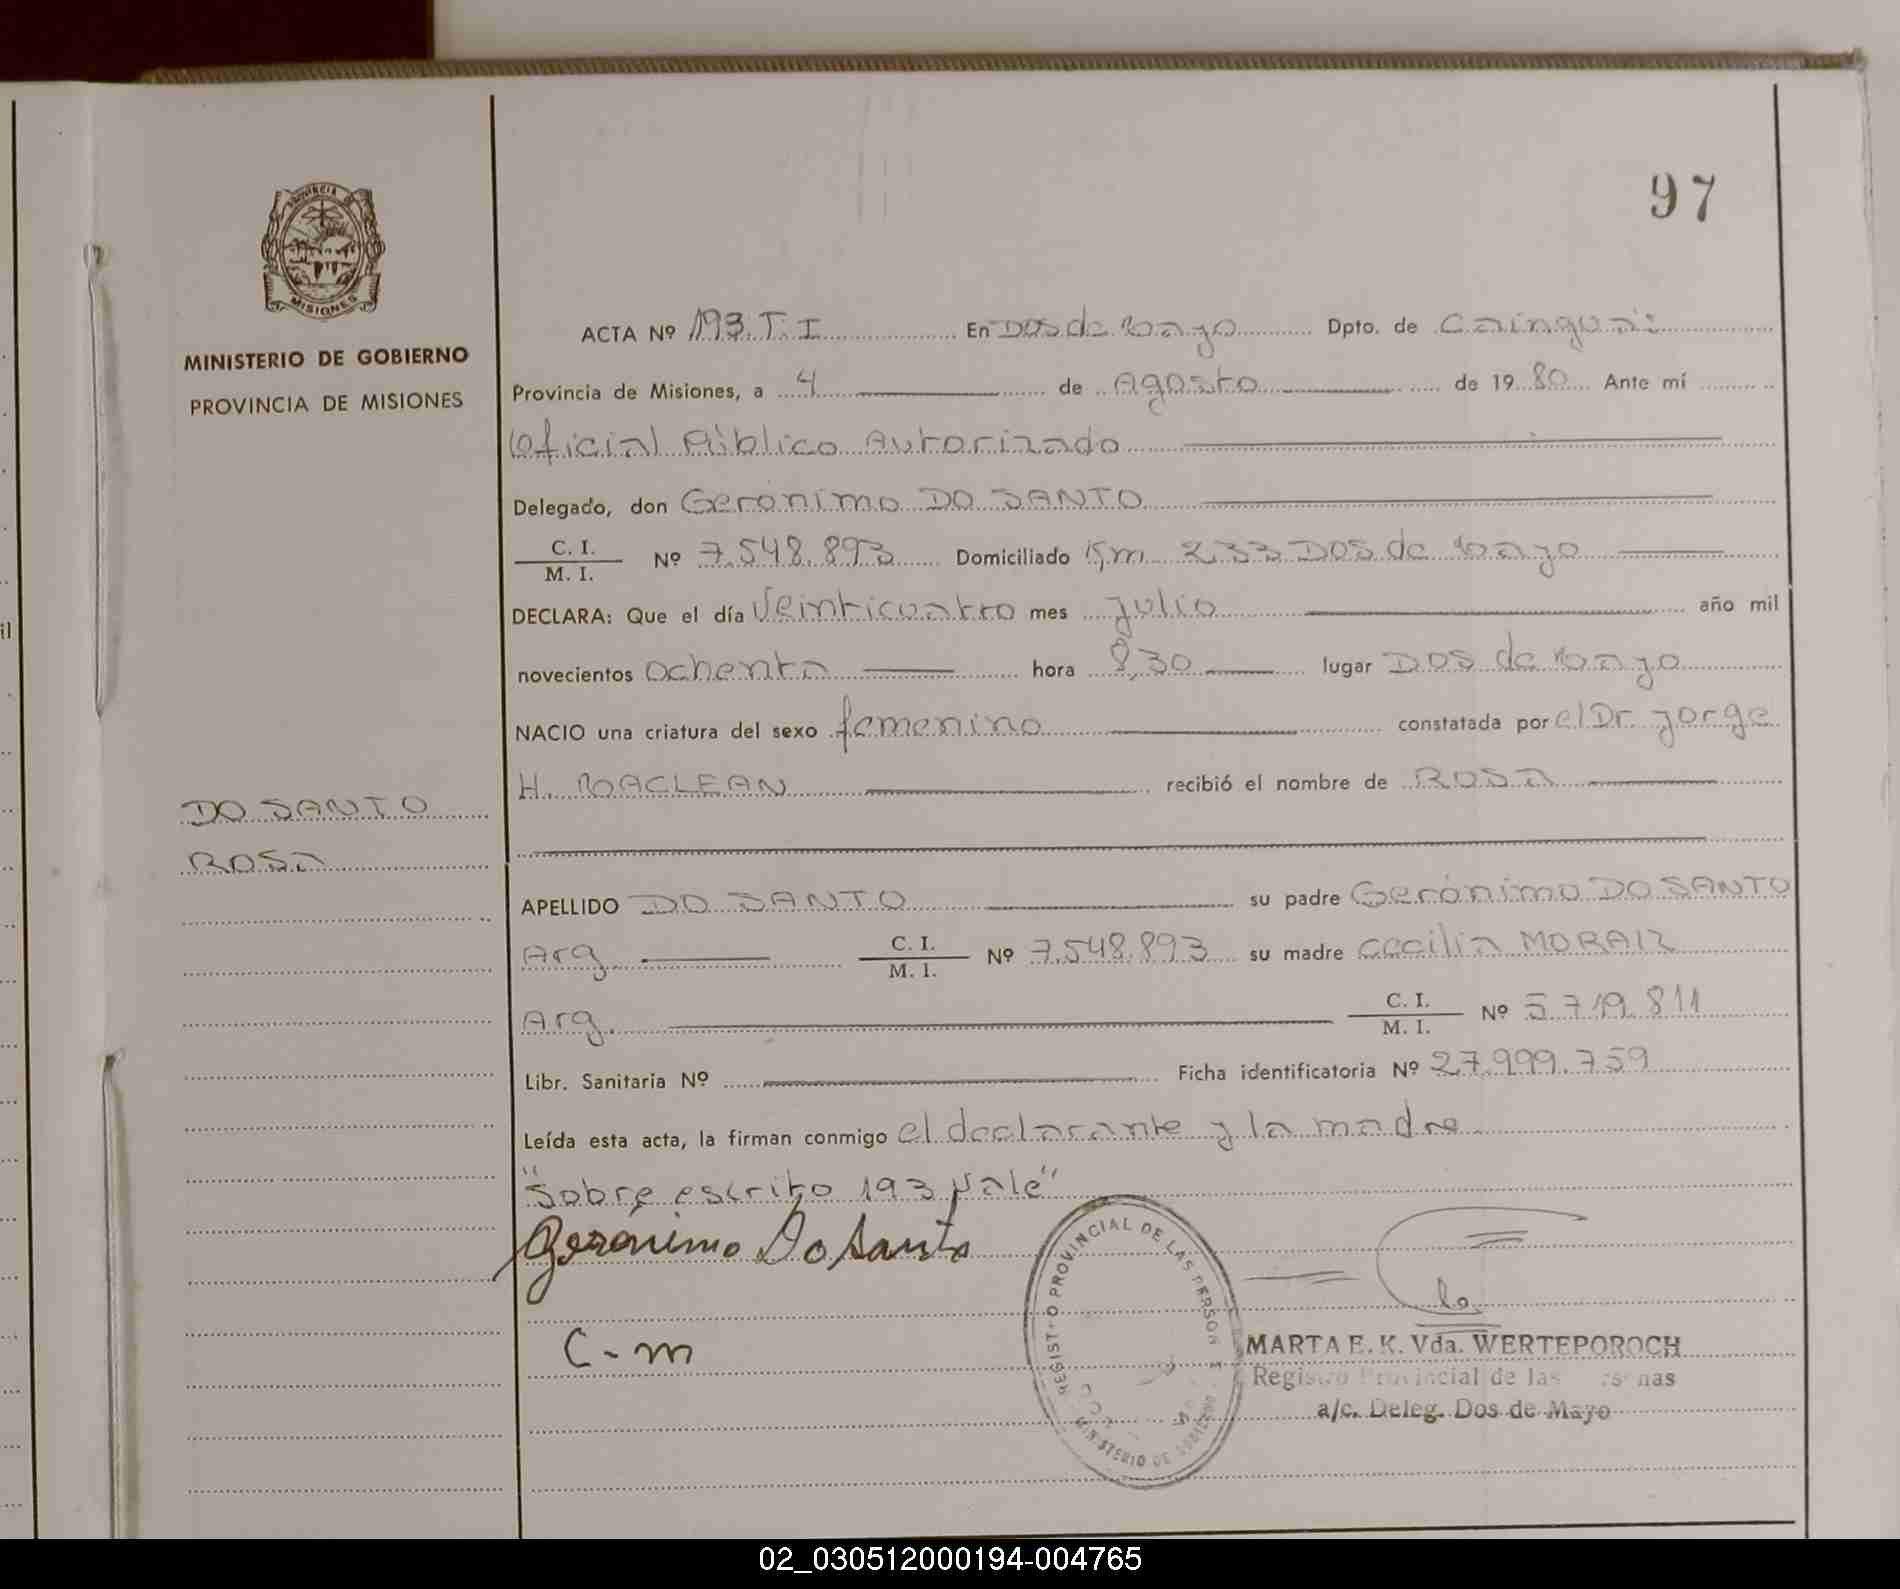 97
PROVINCIA DE
MISIONES
MINISTERIO DE GOBIERNO
PROVINCIA DE MISIONES
DO SANTO
ROSA
ACTA Nº 193.T.I En Dos de Mayo Dpto. de Cainguás
Provincia de Misiones, a 4 de Agosto de 1980 Ante mí
Oficial Público Autorizado
Delegado, don Gerónimo DO SANTO
C. I.
M. I. Nº 7.548.893 Domiciliado Km 233 Dos de Mayo
DECLARA: Que el día Veinticuatro mes julio año mil
novecientos ochenta hora 8,30 lugar Dos de Mayo
NACIO una criatura del sexo femenino constatada por el Dr. Jorge
H. MACLEAN recibió el nombre de ROSA
APELLIDO DO SANTO su padre Gerónimo DO SANTO
Arg. C. I.
M. I. Nº 7.548.893 su madre Cecilia MORAIZ
Arg. C. I.
M. I. Nº 5.719.811
Libr. Sanitaria Nº Ficha identificatoria Nº 27.999.759
Leída esta acta, la firman conmigo el declarante y la madre
"Sobre escrito 193 Vale"
Gerónimo Do Santo
C-m
REGISTRO PROVINCIAL DE LAS PERSONAS
MINISTERIO DE GOBIERNO
MARTA E. K. Vda. WERTEPOROCH
Registro Provincial de las Personas
a/c. Deleg. Dos de Mayo
il
02_030512000194-004765